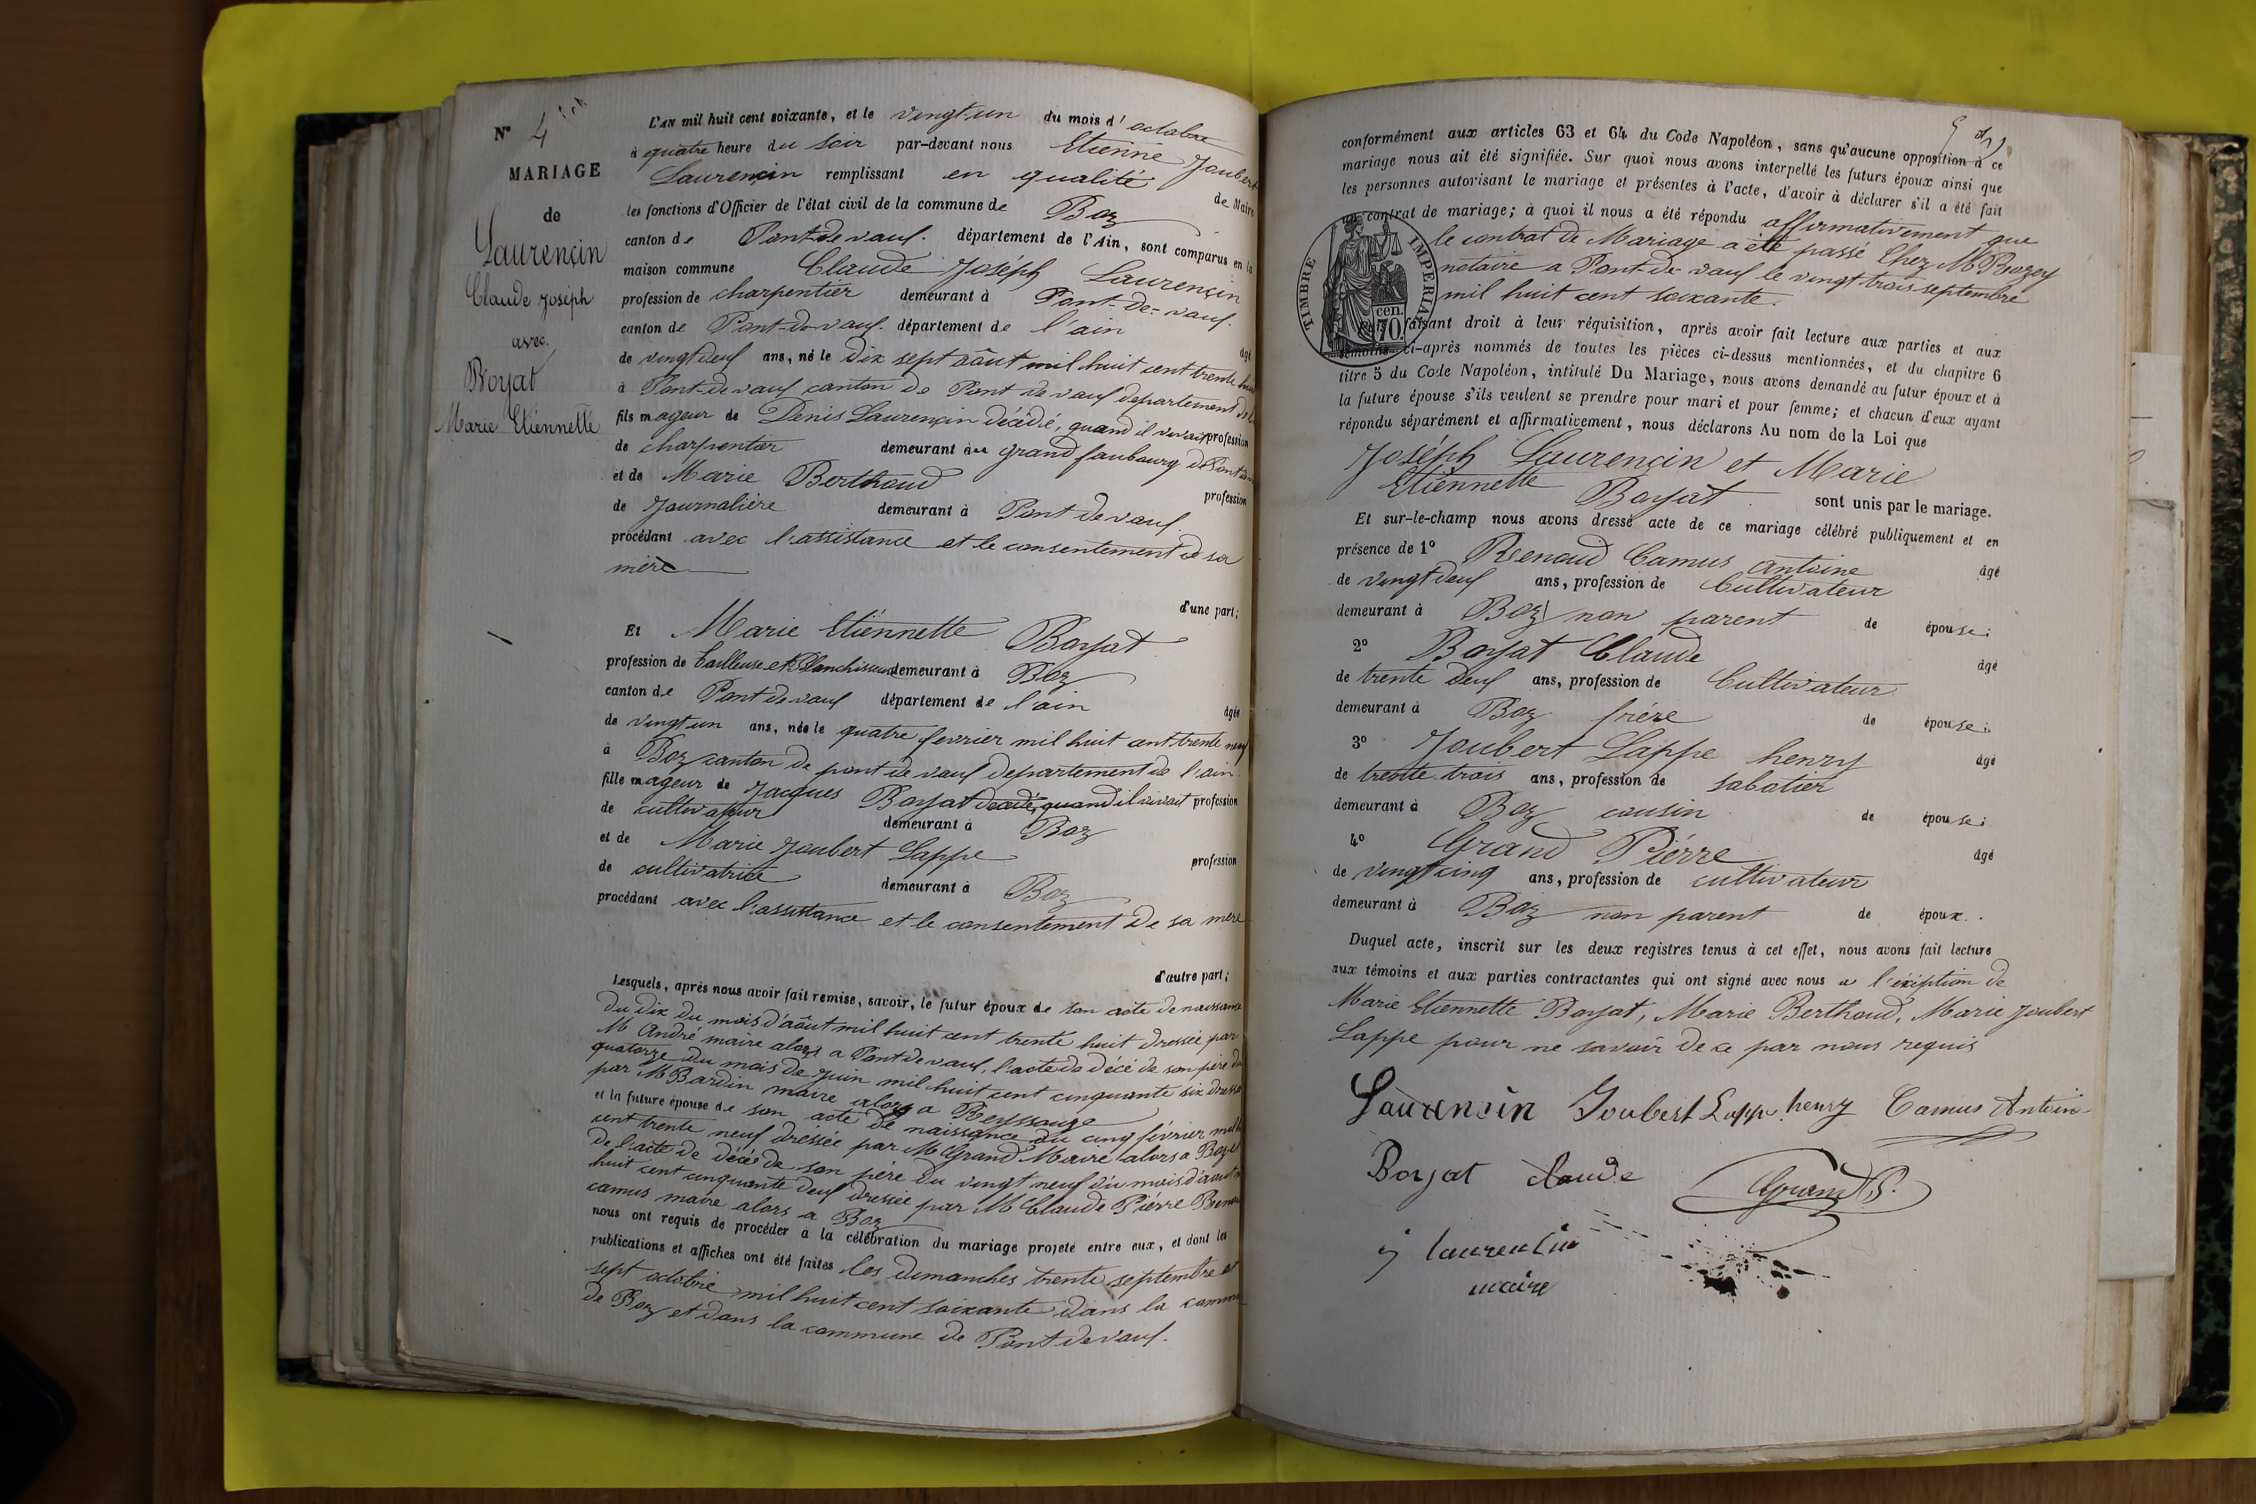 N° 4
MARIAGE
de
Laurençin
Claude Joséph
avec
Boyat
Marie Etiennette
L'AN mil huit cent soixante, et le vingt un du mois d'octobre
à quatre heure du soir par-devant nous Etienne Joubert
Laurençin remplissant en qualité de Maire
les fonctions d'Officier de l'état civil de la commune de Boz
canton de Pont-de vaux. département de l'Ain, sont comparus en la
maison commune Claude Joséph Laurençin
profession de charpentier demeurant à Pont-De-vaux.
canton de Pont-de vaux. département de l'ain âgé
de vingt deux ans, né le dix sept août mil huit cent trente huit
à Pont-de vaux canton de Pont de vaux departement de l'
fils mageur de Denis Laurençin décédé, quand il vivait profession
de charpentier demeurant au grand faubourg de Pont de
et de Marie Berthoud profession
de Journalière demeurant à Pont de vaux
procédant avec l'assistance et le consentement de sa
mère
d'une part;
Et Marie Etiennette Boyat
profession de tailleuse et Blanchisseuse demeurant à Boz
canton de Pont de vaux département de l'ain âgée
de vingt un ans, née le quatre fevrier mil huit cent trente neuf
à Boz canton de pont de vaux departement de l'ain
fille mageur de Jacques Boyat decédé, quand il vivait profession
de cultivateur demeurant à Boz
et de Marie Joubert Lappe profession
de cultivatrice demeurant à Boz
procédant avec l'assistance et le consentement de sa mère
d'autre part;
Lesquels, après nous avoir fait remise, savoir, le futur époux de son acte de naissance
du dix du mois d'août mil huit cent trente huit dressée par
M André maire alors a Pont de vaux, l'acte de décé de son père du
quatorze du mois de Juin mil huit cent cinquante six dressé
par M Bardin maire alors a Reyssouze
et la future épouse de son acte de naissance du cinq février mil
cent trente neuf dréssée par M Grand Maire alors a Boz et
de l'acte de décé de son père du vingt neuf du mois d'aout
huit cent cinquante deux dressée par M Claude Piérre Renoud
camus maire alors a Boz
nous ont requis de procéder à la célébration du mariage projeté entre eux, et dont les
publications et affiches ont été faites les dimanches trente septembre et
sept octobre mil huit cent soixante dans la commune
de Boz et dans la commune de Pont de vaux.
conformément aux articles 63 et 64 du Code Napoléon, sans qu'aucune opposition à ce
mariage nous ait été signifiée. Sur quoi nous avons interpellé les futurs époux ainsi que
les personnes autorisant le mariage et présentes à l'acte, d'avoir à déclarer s'il a été fait
un contrat de mariage; à quoi il nous a été répondu affirmativement que
le contrat de Mariage a été passé Chez M
notaire a Pont-de-vaux le vingt trois septembre
mil huit cent soixante.
TIMBRE IMPERIAL
70 cen.
faisant droit à leur réquisition, après avoir fait lecture aux parties et aux
témoins ci-après nommés de toutes les pièces ci-dessus mentionnées, et du chapitre 6
titre 5 du Code Napoléon, intitulé Du Mariage, nous avons demandé au futur époux et à
la future épouse s'ils veulent se prendre pour mari et pour femme; et chacun d'eux ayant
répondu séparément et affirmativement, nous déclarons Au nom de la Loi que
Joséph Laurençin et Marie
Etiennette Boyat sont unis par le mariage.
Et sur-le-champ nous avons dressé acte de ce mariage célébré publiquement et en
présence de 1° Renoud Camus Antoine âgé
de vingt deux ans, profession de Cultivateur
demeurant à Boz non parent de épouse;
2° Boyat Claude âgé
de trente deux ans, profession de Cultivateur
demeurant à Boz frère de épouse;
3° Joubert Lappe henry âgé
de trente trois ans, profession de sabotier
demeurant à Boz cousin de épouse;
4° Grand Piérre âgé
de vingt cinq ans, profession de cultivateur
demeurant à Boz non parent de époux.
Duquel acte, inscrit sur les deux registres tenus à cet effet, nous avons fait lecture
aux témoins et aux parties contractantes qui ont signé avec nous a l'éxéption de
Marie Etiennette Boyat, Marie Berthoud, Marie Joubert
Lappe pour ne savoir de ce par nous requis
Laurencin Joubert Lappe henry Camus Antoine
Boyat claude Grand P.
j laurencin
maire